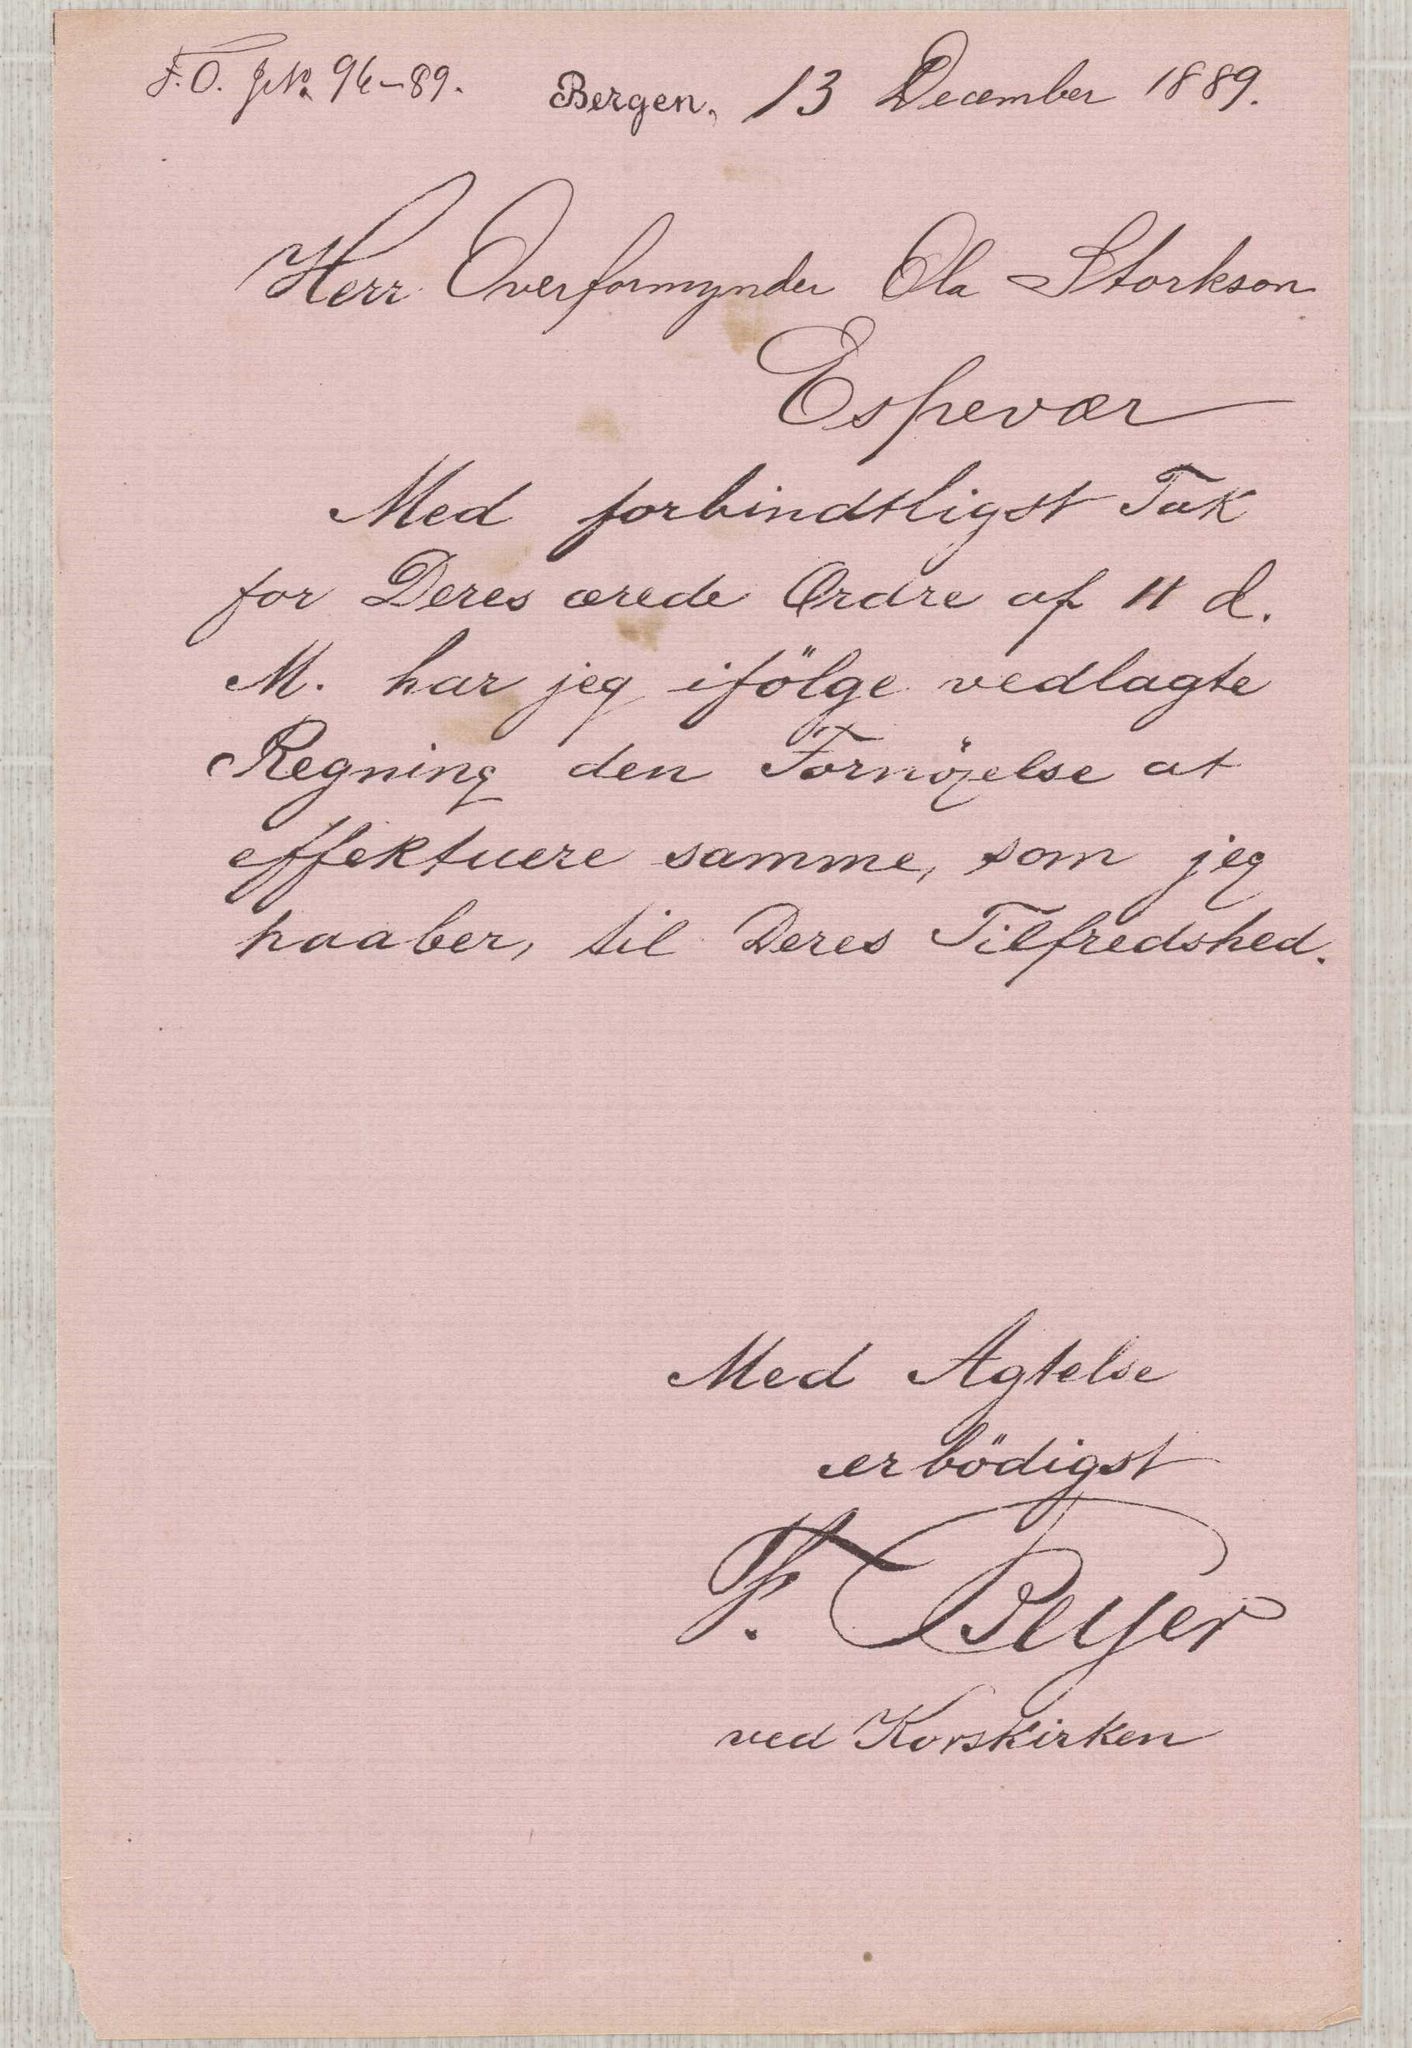 F.O. JNo. 96-89. Bergen, 13 December 1889.
Herr Overformynder Ola Storkson
Espevær
Med forbindtligst Tak
for Deres ærede Ordre af 11 d.
M. har jeg ifölge vedlagte
Regning den Fornöjelse at
effektuere samme, som jeg
haaber, til Deres Tilfredshed.
Med Agtelse
ærbödigst
F. Beyer
ved Korskirken